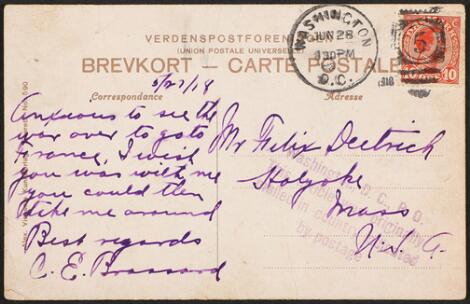 VERDENSPOSTFORENINGEN
(UNION POSTALE UNIVERSELLE)
BREVKORT – CARTE POSTALE
Correspondance
Adresse
WASHINGTON
JUN 28
130PM
D.C.
1918
10
5/27/18
Anxious to see the
war over to go to
France, I wish
you was with me
you could then
take me around
Best regards
C. E. Brassard
Mr Felix Dietrich
Holyoke
Mass
U.S.A.
Washington, D. C., P. O.
originally
mailed in country indicated
by postage